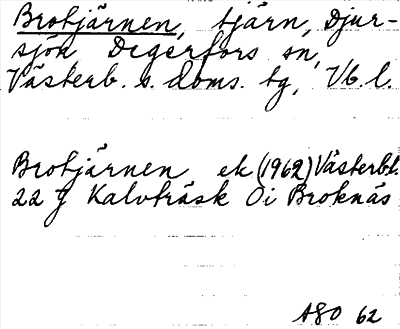 Brotjärnen, tjärn, Djur-
sjön Degerfors sn,
Västerb. s. doms. tg, Vb. l.
Brotjärnen ek (1962) Västerbt.
22 J Kalvträsk 0i Broknäs
ASO 62